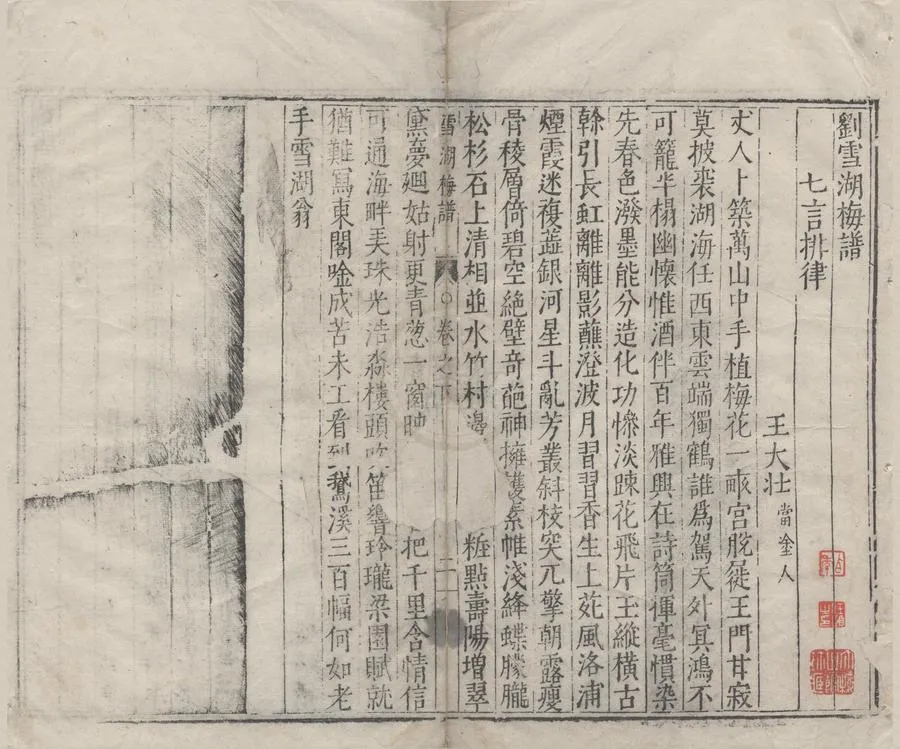 劉雪湖梅譜
七言排律
王大壯 當塗人
丈人卜築萬山中手植梅花一畝宮脫屣王門甘寂
莫披裘湖海任西東雲端獨鶴誰為駕天外冥鴻不
可籠半榻幽懷惟酒伴百年雅興在詩筒揮毫慣染
先春色潑墨能分造化功慘淡踈花飛片玉縱橫古
榦引長虹離離影蘸澄波月習習香生上苑風洛浦
煙霞迷複蓋銀河星斗亂芳叢斜枝突兀擎朝露瘦
骨稜層倚碧空絕壁奇葩神擁護素帷淺絳蝶朦朧
松杉石上清相並水竹村邊 粧點壽陽增翠
雪湖梅譜 卷之下 二
黛夢廻姑射更青葱一窗 把千里含情信
可通海畔弄珠光浩淼樓頭吹笛響玲瓏梁園賦就
猶難寫東閣唫成苦未工看到鵞溪三百幅何如老
手雪湖翁